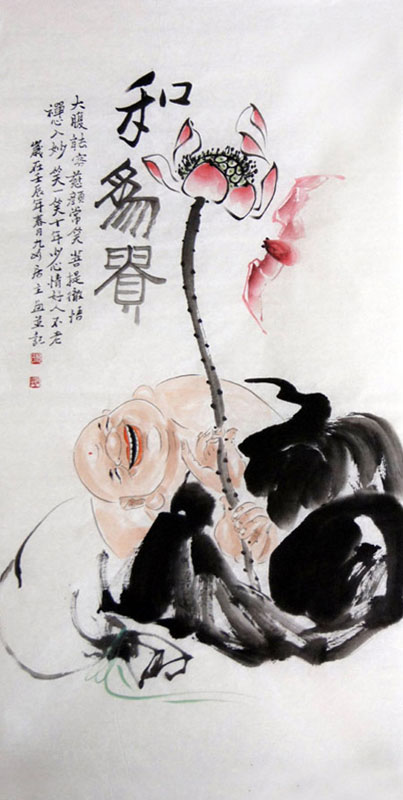 和為貴
大腹能容慈顏常笑菩提徹悟
禪心入妙笑一笑十年少心情好人不老
歲在壬辰年春月九居主画並記